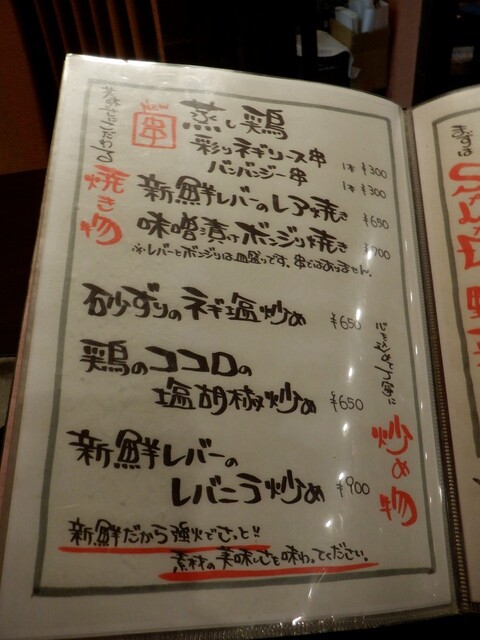 焼き物
串
蒸し鶏
彩りネギソース串 1本 ¥300
バンバンジー串 1本 ¥300
新鮮レバーのレア焼き ¥650
味噌漬けボンジリ焼き ¥700
※レバーとボンジリは皿盛りです、串ではありません。
砂ずりのネギ塩炒め ¥650
鶏のココロの
塩胡椒炒め ¥650
新鮮レバーの
レバニラ炒め ¥900
炒め物
新鮮だから強火でさっと!!
素材の美味しさを味わってください。